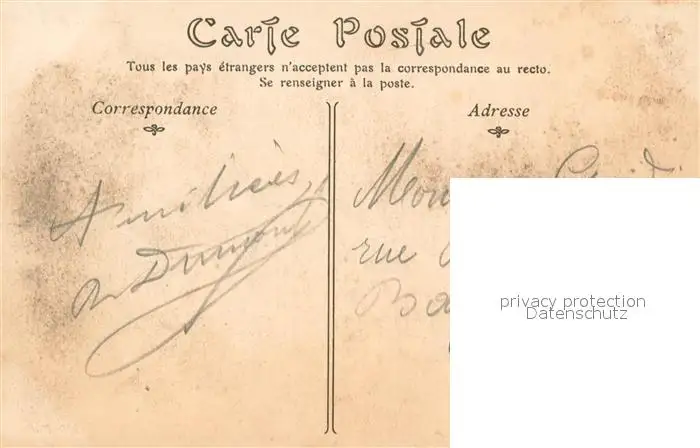 Carte Postale
Tous les pays étrangers n'acceptent pas la correspondance au recto.
Se renseigner à la poste.
Correspondance
Adresse
Amitiés
rue
privacy protection
Datenschutz